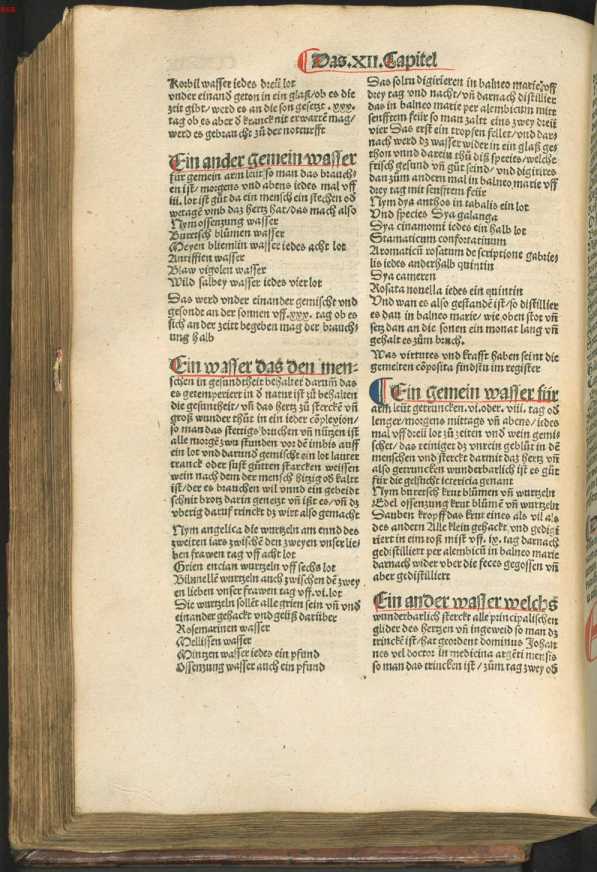 Das.XII.Capitel
Korbil wasser iedes dreü lot
vnder einand geton in ein glaß/ob es die
zeit gibt/werd es an die son gesetzt .xxx.
tag ob es aber d kranck nit erwartē mag/
werd es gebraucht zū der noturfft
Ein ander gemein wasser
für gemein arm leut so man das brauch-
en ist/morgens vnd abens iedes mal vff
iii. lot ist gůt da ein mensch ein stechen od
wetagē vmb daz hertz hat/das mach also
Nym ossenzung wasser
Burretsch blůmen wasser
Meyen bliemlin wasser iedes acht lot
Antiffien wasser
Blaw vigolen wasser
Wild salbey wasser iedes vier lot
Das werd vnder einander gemischt vnd
gesonde an der sonnen vff.xxx. tag ob es
sich an der zeitt begeben mag der brauch-
ung halb
Ein wasser das den men-
schen in gesundtheit behaltet darum̄ das
es getemperiert in d natur ist zů behalten
die gesuntheit/vn̄ das hertz zů sterckē vn̄
groß wunder thůt in ein ieder cōplexion/
so man das stetigs bruchen vn̄ nützen ist
alle morgē zwo stunden vor dē imbis auff
ein lot vnd darumd gemischt ein lot lauter
tranck oder sust gůtten starcken weissen
wein nach dem der mensch hitzig od kalt
ist/der es brauchen wil vnnd ein gebeidt
schnit brotz darin genetzt vn̄ ißt es/vn̄ dz
vberig daruf trinckt dz wirt also gemacht
Nym angelica die wurtzeln am ennd des
zweiten iars zwischē den zweyen vnser lie-
ben frawen tag vff acht lot
Grien encian wurtzeln vff sechs lot
Bibinellē wurtzeln auch zwischen dē zwey
en lieben vnser frawen tag vff.vi.lot
Die wurtzeln sollēt alle grien sein vn̄ vnd
einander gehackt vnd geüß darüber
Rosemarinen wasser
Mellissen wasser
Mintzen wasser iedes ein pfund
Ossenzung wasser auch ein pfund
Das soltu digirieren in balneo marie vff
drey tag vnd nacht/vn̄ darnach distillier
das in balneo marie per alembicum mitt
senfftem feür so man zalt eins zwey dreü
vier Das erst ein tropfen fellet/vnd dar-
nach werd dz wasser wider in ein glaß ge
thon vnnd darein thů diß species/welche
frisch gesund vn̄ gůt seind/vnd digirires
dan zům andern mal in balneo marie vff
drey tag mit senfftem feür
Nym dya anthos in tabulis ein lot
Vnd species Dya galanga
Dya cinamomi iedes ein halb lot
Stamaticum confortatiuum
Aromaticū rosatum descriptione gabrie-
lis iedes anderhalb quintin
Dya cameren
Rosata nouella iedes ein quintin
Vnd wan es also gestandē ist/so distillier
es dan in balneo marie/wie oben stot vn̄
setz dan an die sonen ein monat lang vn̄
gehalt es zům bruch.
Was virtutes vnd krafft haben seint die
gemelten cōposita findstu im register
Ein gemein wasser für
arm leüt getruncken.vi.oder.viii. tag od
lenger/morgens mittags vn̄ abens/iedes
mal vff dreü lot zů zeiten vnd wein gemi
schet/das reiniget dz vnrein geblüt in dē
menschen vnd sterckt darmit daz hertz vn̄
also getruncken wunderbarlich ist es gůt
für die gelsucht ictericia genant
Nym burretsch krut blůmen vn̄ wurtzeln
Edel ossenzung krut blůmē vn̄ wurtzeln
Dauben kropff das krut eines als vil als
des andern Alle klein gehackt vnd gedigi
riert in eim roß mist vff. ix. tag darnach
gedistilliert per alembicū in balneo marie
darnach wider vber die feces gegossen vn̄
aber gedistilliert
Ein ander wasser welchs
wunderbarlich sterckt alle principalischen
glider des hertzen vn̄ ingeweid so man dz
trinckē ist/hat geordent dominus Johan
nes vel doctor in medicina argēti mensis
so man das trincken ist/zům tag zwey od